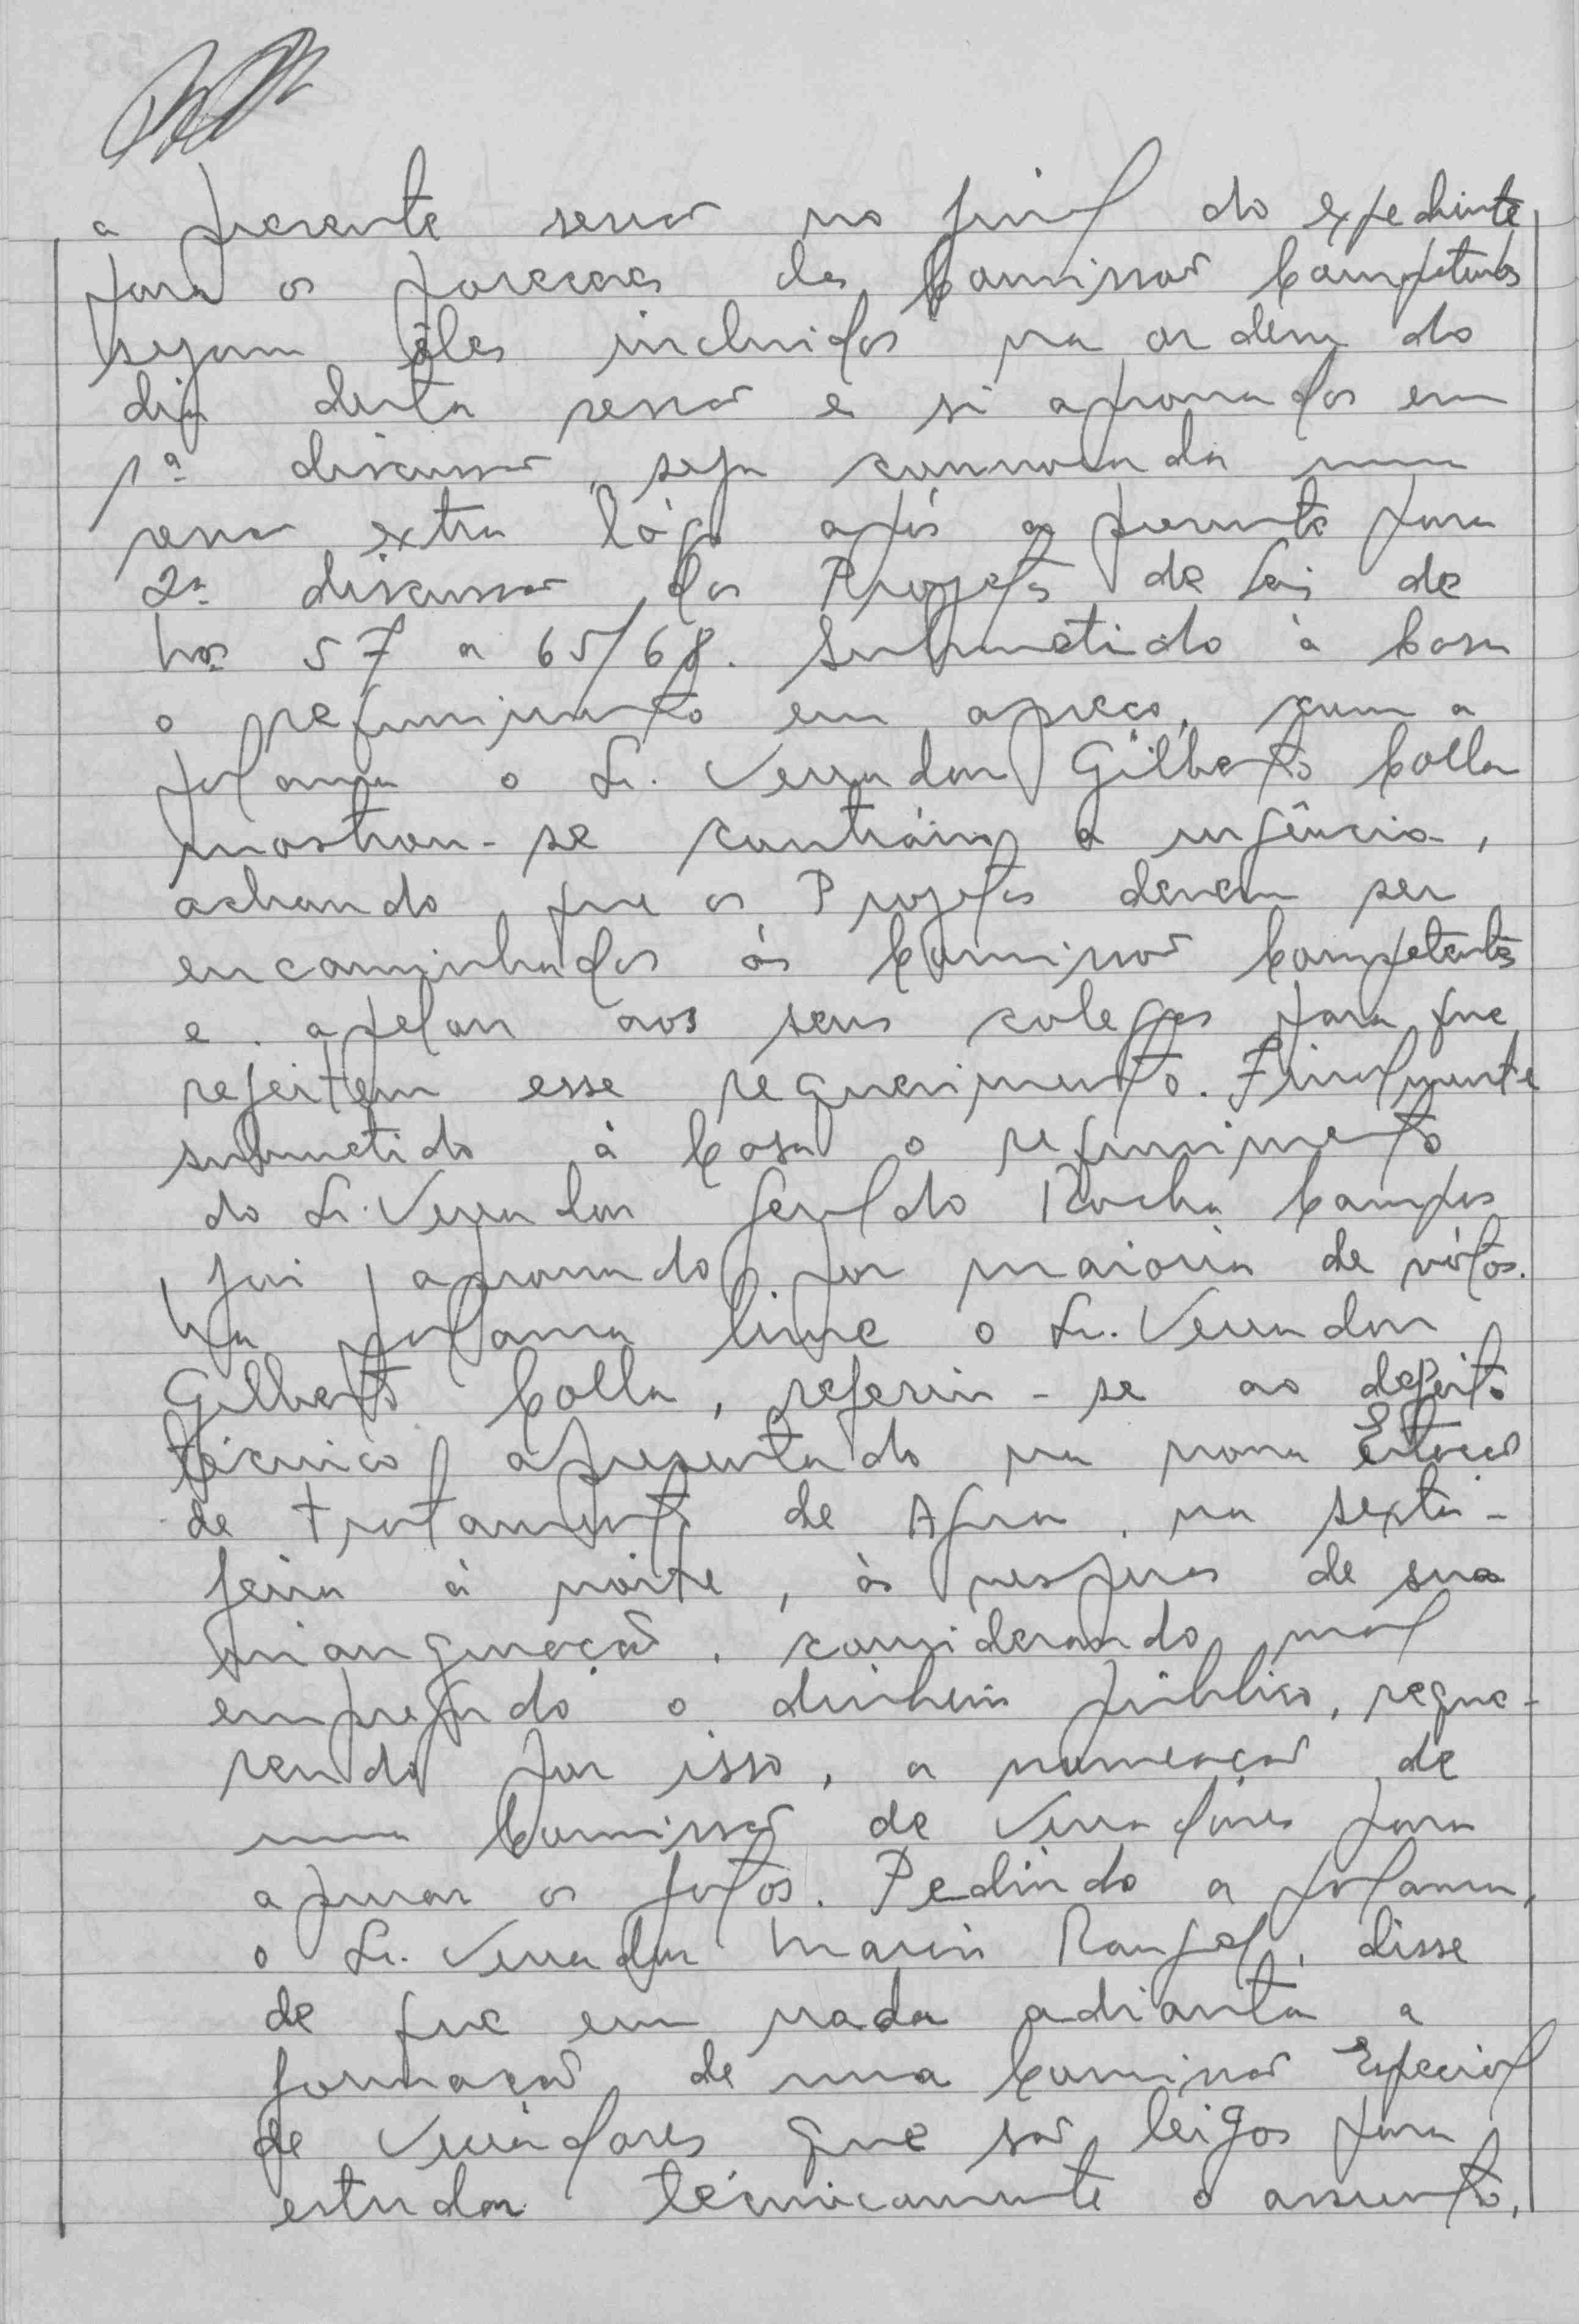 a presente sessão no final do expediente
para os pareceres das Comissões Competentes
sejam êles incluidos na ordem do
dia desta sessão e si aprovados em
1ª discussão, seja convocada uma
sessão extra lógo após a presente para
2ª discussão dos Projetos de Lei de
Nos 57 a 65/68. Submetido à Casa
o requerimento em apreço, com a
palavra o Sr. Vereador Gilberto Colla
mostrou-se contrário a urgência,
achando que os Projetos devem ser
encaminhados ás Comissões Competentes
e apelou aos seus colegas para que
rejeitem esse requerimento. Finalmente
submetido à Casa o requerimento
do Sr. Vereador Geraldo Rocha Campos
foi aprovado por maioria de vótos.
Na palavra livre o Sr. Vereador
Gilberto Colla, referiu-se ao defeito
técnico apresentado na nova Estação
de Tratamento de Agua, na sexta-
feira à noite, às vesperas de sua
inauguração, considerando mal
empregado o dinheiro público, reque-
rendo por isso, a nomeação de
uma Comissão de Vereadores para
apurar os fatos. Pedindo a palavra,
o Sr. Vereador Mario Rangel, disse
de que em nada adianta a
formação de uma Comissão Especial
de Vereadores que são leigos para
estudar técnicamente o assunto.